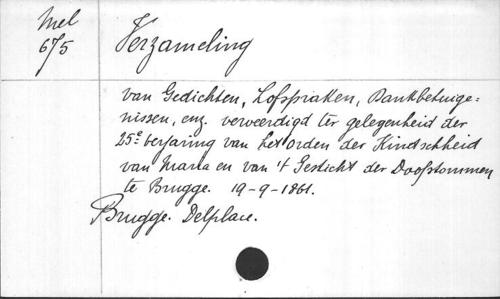 Mel
675
Verzameling
van Gedichten, Lofspraken, Dankbetuige=
nissen, enz. verveerdigd ter gelegenheid der
25e verjaring van het orden der Kindschheid
van Maria en van 't Gesticht der Doofstommen
te Brugge. 19-9-1861.
Brugge. Delplace.